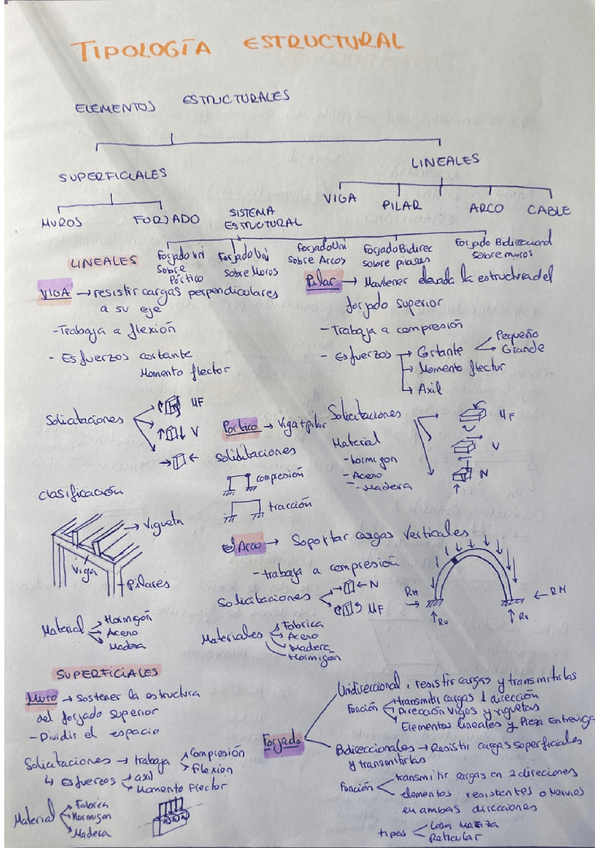 TIPOLOGÍA ESTRUCTURAL
ELEMENTOS ESTRUCTURALES
SUPERFICIALES
LINEALES
MUROS
FORJADO
SISTEMA
ESTRUCTURAL
VIGA
PILAR
ARCO
CABLE
Forjado Uni
sobre
Pórtico
Forjado Uni
sobre Muros
Forjado Uni
sobre Arcos
Forjado Bidirec
sobre pilares
Forjado Bidireccional
sobre muros
LINEALES
VIGA → resistir cargas perpendiculares
a su eje
- Trabaja a flexión
- Esfuerzos cortante
Momento flector
Solicitaciones
MF
V
Clasificación
Vigueta
Viga
Pilares
Material
Hormigón
Acero
Madera
Pilar → Mantener elevada la estructura del
forjado superior
- Trabaja a compresión
- Esfuerzos → Cortante
Pequeño
Grande
→ Momento flector
→ Axil
Pórtico → Viga + pilar
Solicitaciones
compresión
tracción
Solicitaciones
MF
V
N
Material
- hormigon
- Acero
- Madera
Arco → Soportar cargas verticales
- trabaja a compresión
Solicitaciones
N
MF
Materiales
Fabrica
Acero
Madera
Hormigon
RH
RV
RH
RV
SUPERFICIALES
Muro → Sostener la estructura
del forjado superior
- Dividir el espacio
Solicitaciones → trabaja
Compresión
Flexion
Esfuerzos
axil
Momento Flector
Material
Fabrica
Hormigon
Madera
Forjado
Unidireccional: resistir cargas y transmitirlas
Función
transmitir cargas 1 dirección
Dirección Vigas y viguetas
Elementos lineales y Pieza entrevigado
Bidireccionales → Resistir cargas superficiales
y transmitirlas
Función
transmitir cargas en 2 direciones
elementos resistentes o Nervios
en ambas direcciones
tipos
Losa Maciza
Reticular